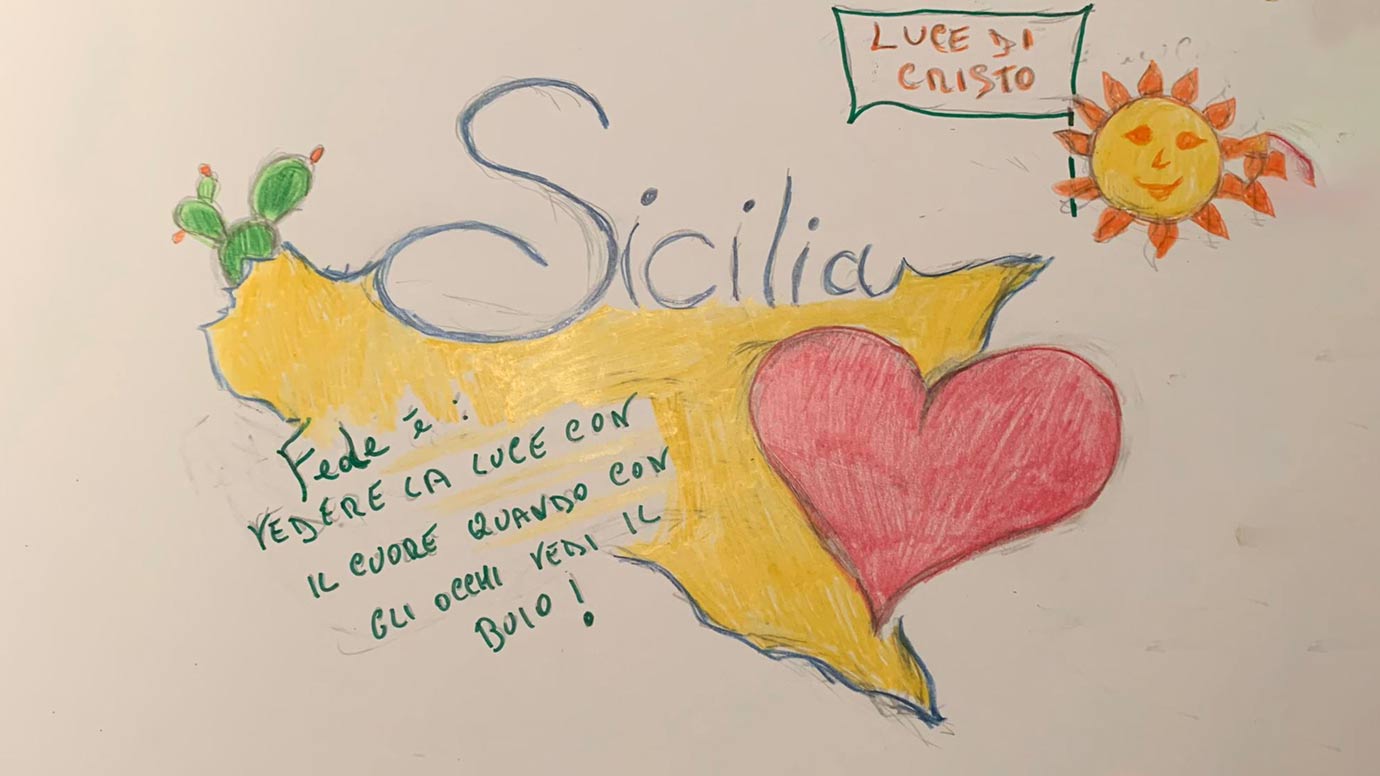 LUCE DI
CRISTO
Sicilia
Fede è:
VEDERE LA LUCE CON
IL CUORE QUANDO CON
GLI OCCHI VEDI IL
BUIO!